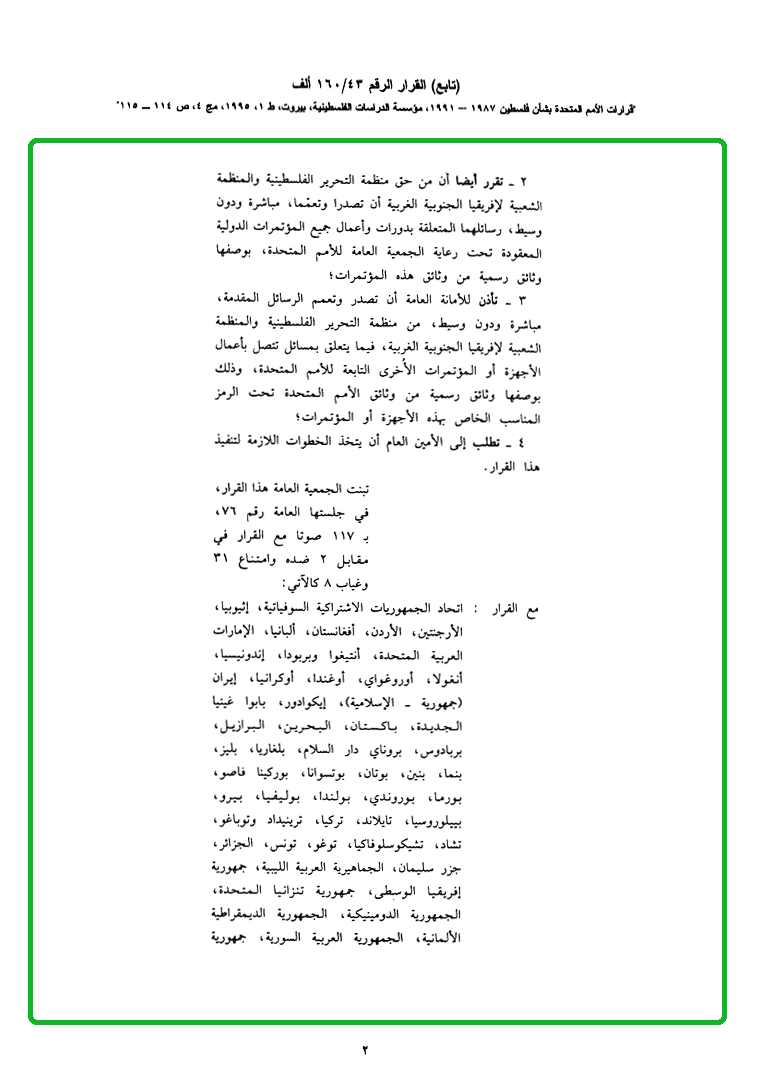 (تابع) القرار الرقم ١٦٠/٤٣ ألف
"قرارات الأمم المتحدة بشأن فلسطين ١٩٨٧ – ١٩٩١، مؤسسة الدراسات الفلسطينية، بيروت، ط ١، ١٩٩٥، مج ٤، ص ١١٤ – ١١٥"
٢ ـ تقرر أيضا أن من حق منظمة التحرير الفلسطينية والمنظمة
الشعبية لإفريقيا الجنوبية الغربية أن تصدرا وتعمّما، مباشرة ودون
وسيط، رسائلهما المتعلقة بدورات وأعمال جميع المؤتمرات الدولية
المعقودة تحت رعاية الجمعية العامة للأمم المتحدة، بوصفها
وثائق رسمية من وثائق هذه المؤتمرات؛
٣ ـ تأذن للأمانة العامة أن تصدر وتعمم الرسائل المقدمة،
مباشرة ودون وسيط، من منظمة التحرير الفلسطينية والمنظمة
الشعبية لإفريقيا الجنوبية الغربية، فيما يتعلق بمسائل تتصل بأعمال
الأجهزة أو المؤتمرات الأُخرى التابعة للأمم المتحدة، وذلك
بوصفها وثائق رسمية من وثائق الأمم المتحدة تحت الرمز
المناسب الخاص بهذه الأجهزة أو المؤتمرات؛
٤ ـ تطلب إلى الأمين العام أن يتخذ الخطوات اللازمة لتنفيذ
هذا القرار.
تبنت الجمعية العامة هذا القرار،
في جلستها العامة رقم ٧٦،
بـ ١١٧ صوتا مع القرار في
مقابل ٢ ضده وامتناع ٣١
وغياب ٨ كالآتي:
مع القرار : اتحاد الجمهوريات الاشتراكية السوفياتية، إثيوبيا،
الأرجنتين، الأردن، أفغانستان، ألبانيا، الإمارات
العربية المتحدة، أنتيغوا وبربودا، إندونيسيا،
أنغولا، أوروغواي، أوغندا، أوكرانيا، إيران
(جمهورية ـ الإسلامية)، إيكوادور، بابوا غينيا
الجديدة، باكستان، البحرين، البرازيل،
بربادوس، بروناي دار السلام، بلغاريا، بليز،
بنما، بنين، بوتان، بوتسوانا، بوركينا فاصو،
بورما، بوروندي، بولندا، بوليفيا، بيرو،
بييلوروسيا، تايلاند، تركيا، ترينيداد وتوباغو،
تشاد، تشيكوسلوفاكيا، توغو، تونس، الجزائر،
جزر سليمان، الجماهيرية العربية الليبية، جمهورية
إفريقيا الوسطى، جمهورية تنزانيا المتحدة،
الجمهورية الدومينيكية، الجمهورية الديمقراطية
الألمانية، الجمهورية العربية السورية، جمهورية
٢